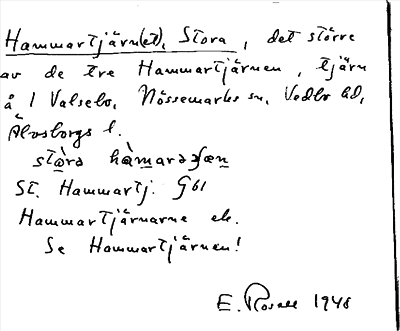 Hammartjärn(et), Stora, det större
av de tre Hammartjärnen, tjärn
å 1 Valsebo, Nössemarks sn, Vedbo hd,
Älvsborgs l.
stò̱rə hàm̱arəʂæṉ
St. Hammartj. G61
Hammartjärnarne ek.
Se Hammartjärnen!
E. Rosell 1948